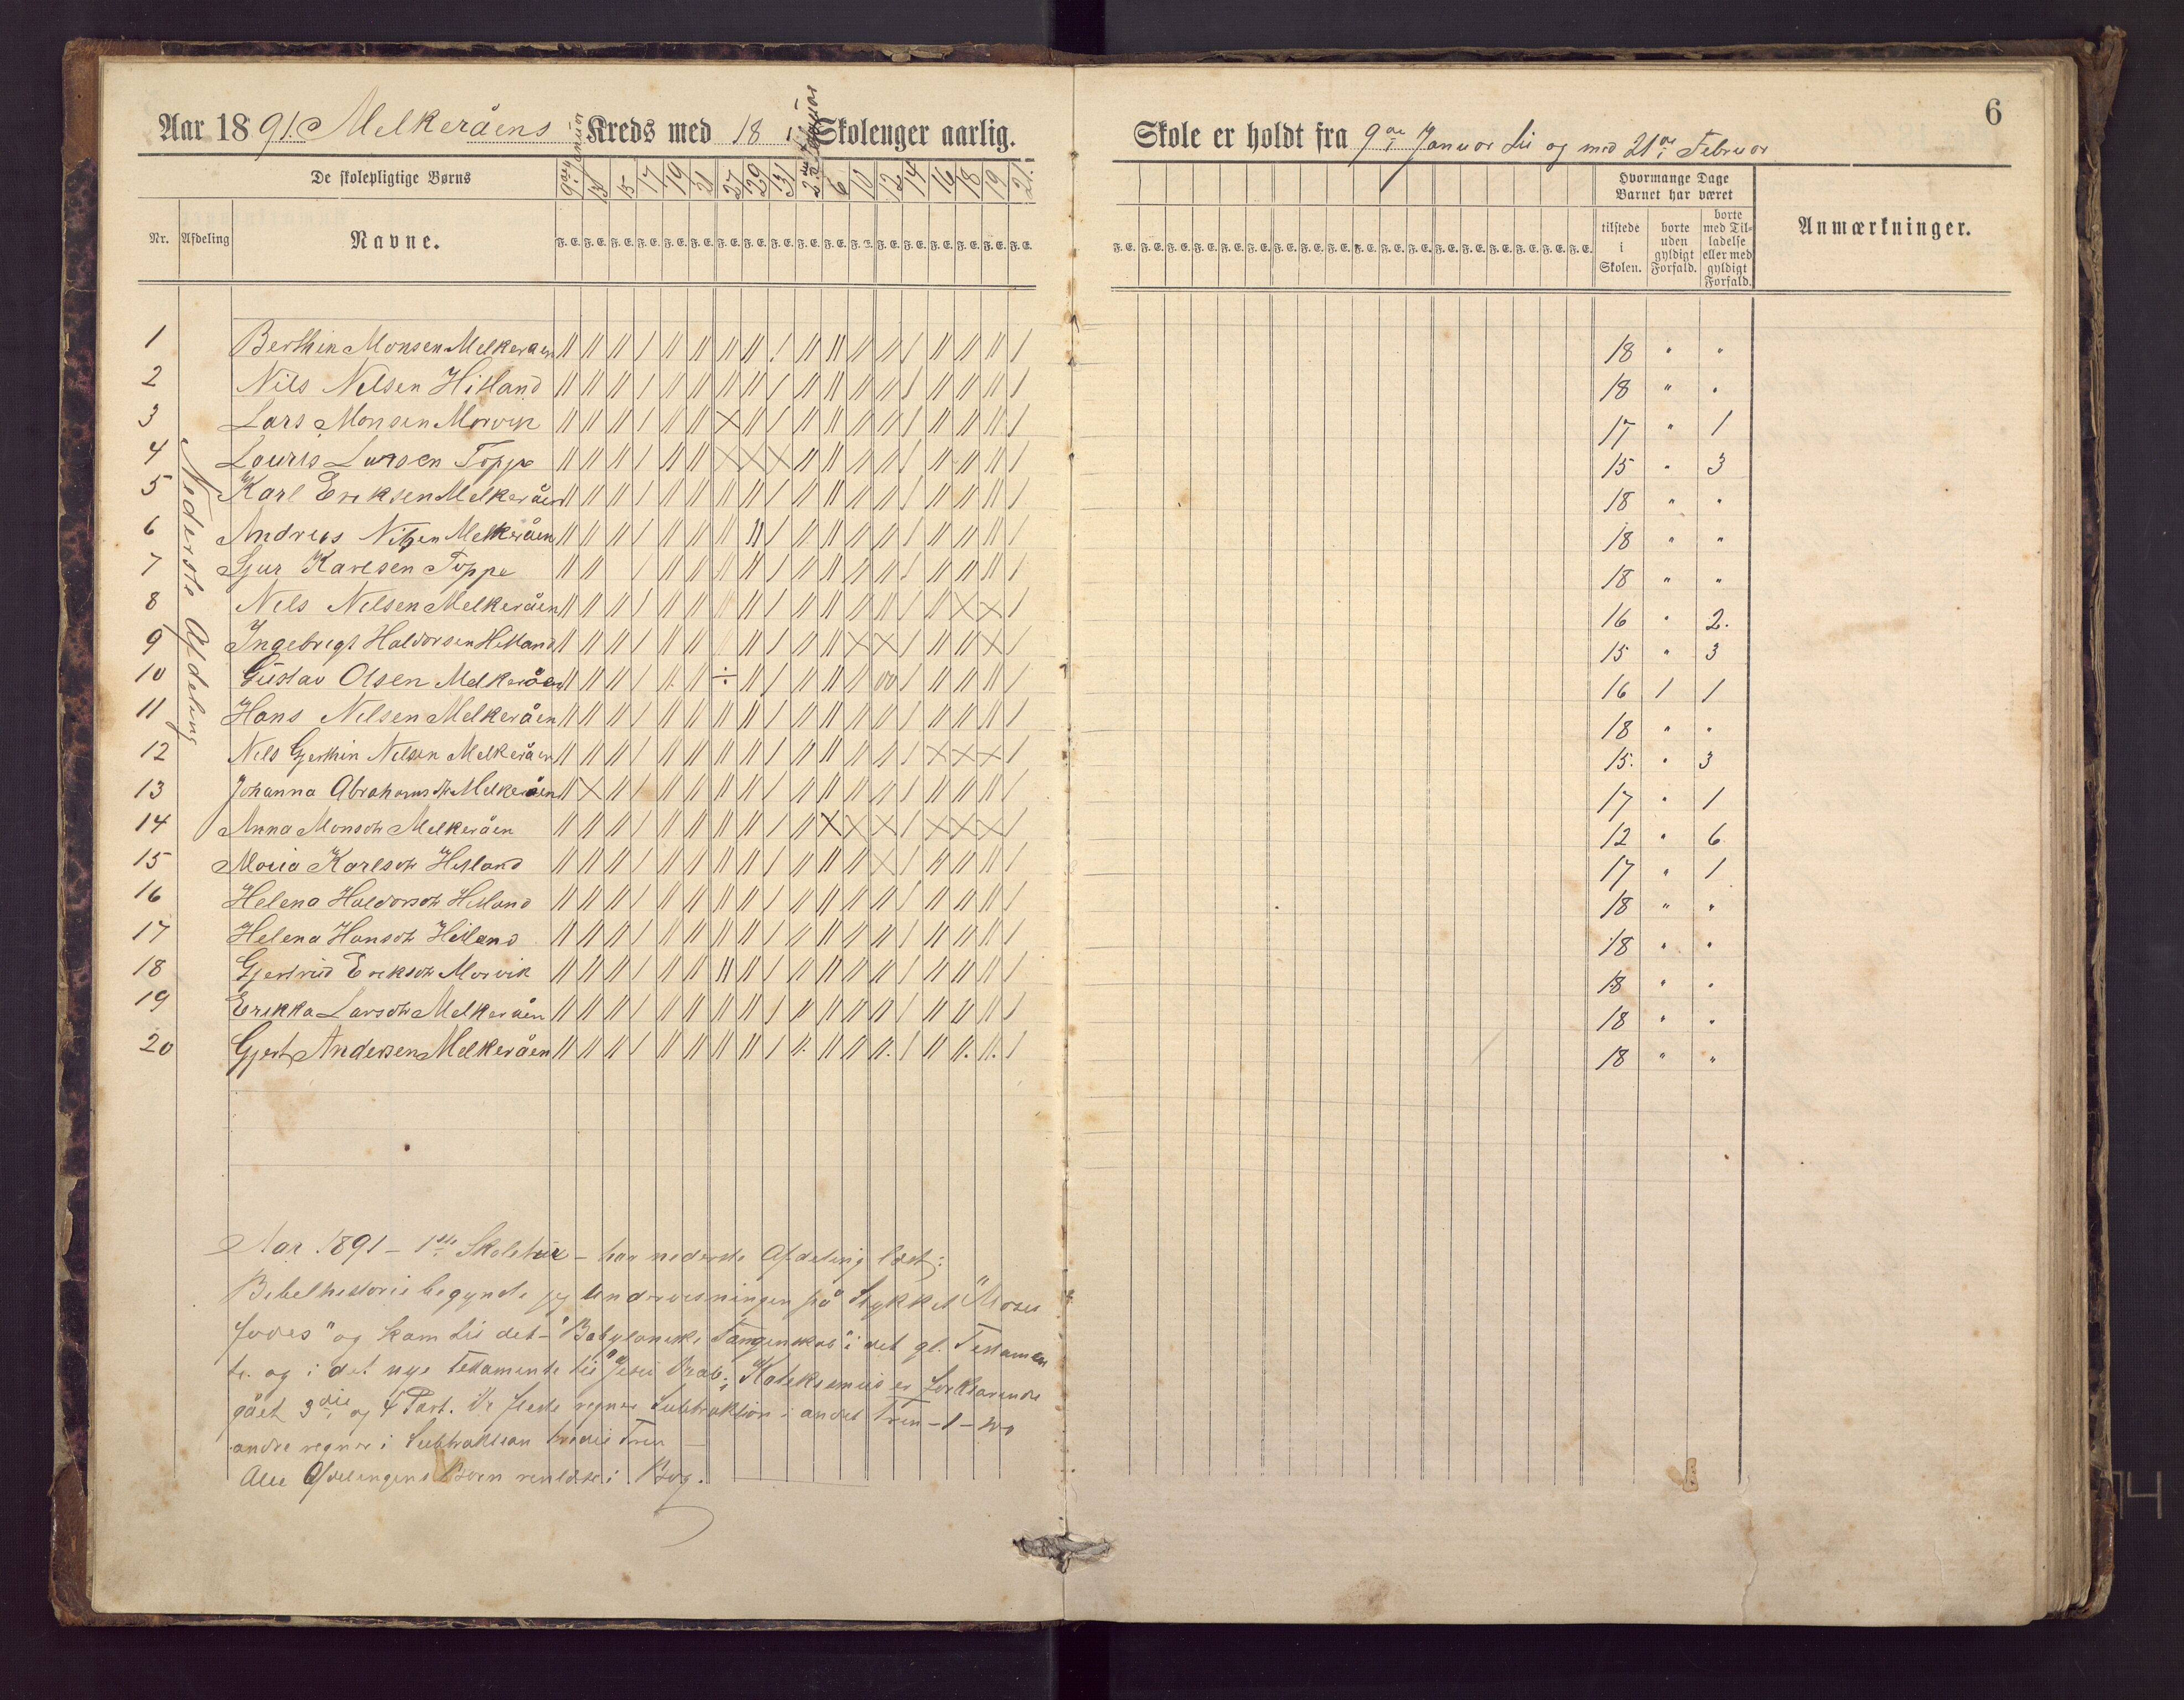 Aar 1891. Melkeråens Kreds med 18 Skolenger aarlig.
De skolepligtige Børns
9de Januar 13 15 17 19 21 27 29 31 2den Februar 6 10 12 14 16 18 19 21.
Nr. Afdeling Navne.
F. E. F. E. F. E. F. E. F. E. F. E. F. E. F. E. F. E. F. E. F. E. F. E. F. E. F. E. F. E. F. E. F. E. F. E.
Nederste Afdeling
1 Berthin Monsen Melkeråen
2 Nils Nilsen Hitland
3 Lars Monsen Morvik
4 Louris Larsen Toppe
5 Karl Eriksen Melkeråen
6 Andreas Nilsen Melkeråen
7 Sjur Karlsen Toppe
8 Nils Nilsen Melkeråen
9 Ingebrigt Haldorsen Hitland
10 Gustav Olsen Melkeråen
11 Hans Nilsen Melkeråen
12 Nils Gjerthin Nilsen Melkeråen
13 Johanna Abrahamsdtr Melkeråen
14 Anna Monsdtr Melkeråen
15 Maria Karlsdtr Hitland
16 Helena Haldorsdtr Hitland
17 Helena Hansdtr Hitland
18 Gjertrud Eriksdtr Morvik
19 Erikka Larsdtr Melkeråen
20 Gjert Andersen Melkeråen
Aar 1891 – 1ste Skoletur – har nederste Afdeling læst:
Bibelhistorie begynte jeg Undervisningen på Stykket "Moses
Jodes" og kom til det – "Babyloniske Fangenskab" i det gl. Testamen
te. og i det nye Testamente til "Jesu Dåb"; Katekismus er forklarende
gået 3die og 4 Part. De fleste regner Subtraktion i andet Trin – 1 – to
andre regner i Subtraktion tredie Trin –
Alle Afdelingens Børn renlæse i Bog.
6
Skole er holdt fra 9de Januar til og med 21de Februar
Hvormange Dage
Barnet har været
tilstede i Skolen.
borte uden gyldigt Forfald.
borte med Tilladelse eller med gyldigt Forfald.
Anmærkninger.
F. E. F. E. F. E. F. E. F. E. F. E. F. E. F. E. F. E. F. E. F. E. F. E. F. E. F. E. F. E. F. E. F. E. F. E.
18 " "
18 " "
17 " 1
15 " 3
18 " "
18 " "
18 " "
16 " 2.
15 " 3
16 1 1
18 " "
15. " 3
17 " 1
12 " 6
17 " 1
18 " "
18 " "
18 " "
18 " "
18 " "